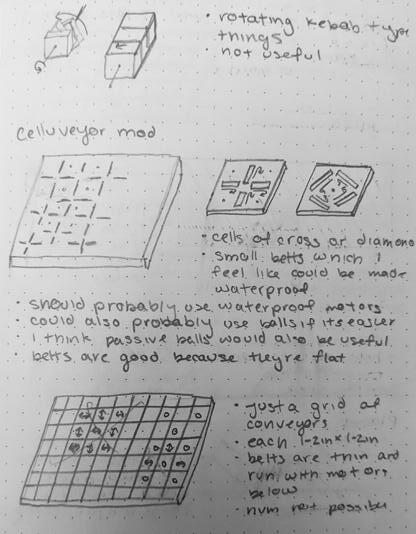 • rotating kebab type
things
• not useful
Celluveyor mod
• cells of cross or diamond
• small belts which I
feel like could be made
waterproof
• should probably use waterproof motors
• could also probably use balls if its easier
• I think passive balls would also be useful
• belts are good because theyre flat
• just a grid of
conveyors
• each 1-2in x 1-2in
• belts are thin and
run with motors
below
• hvm not possible